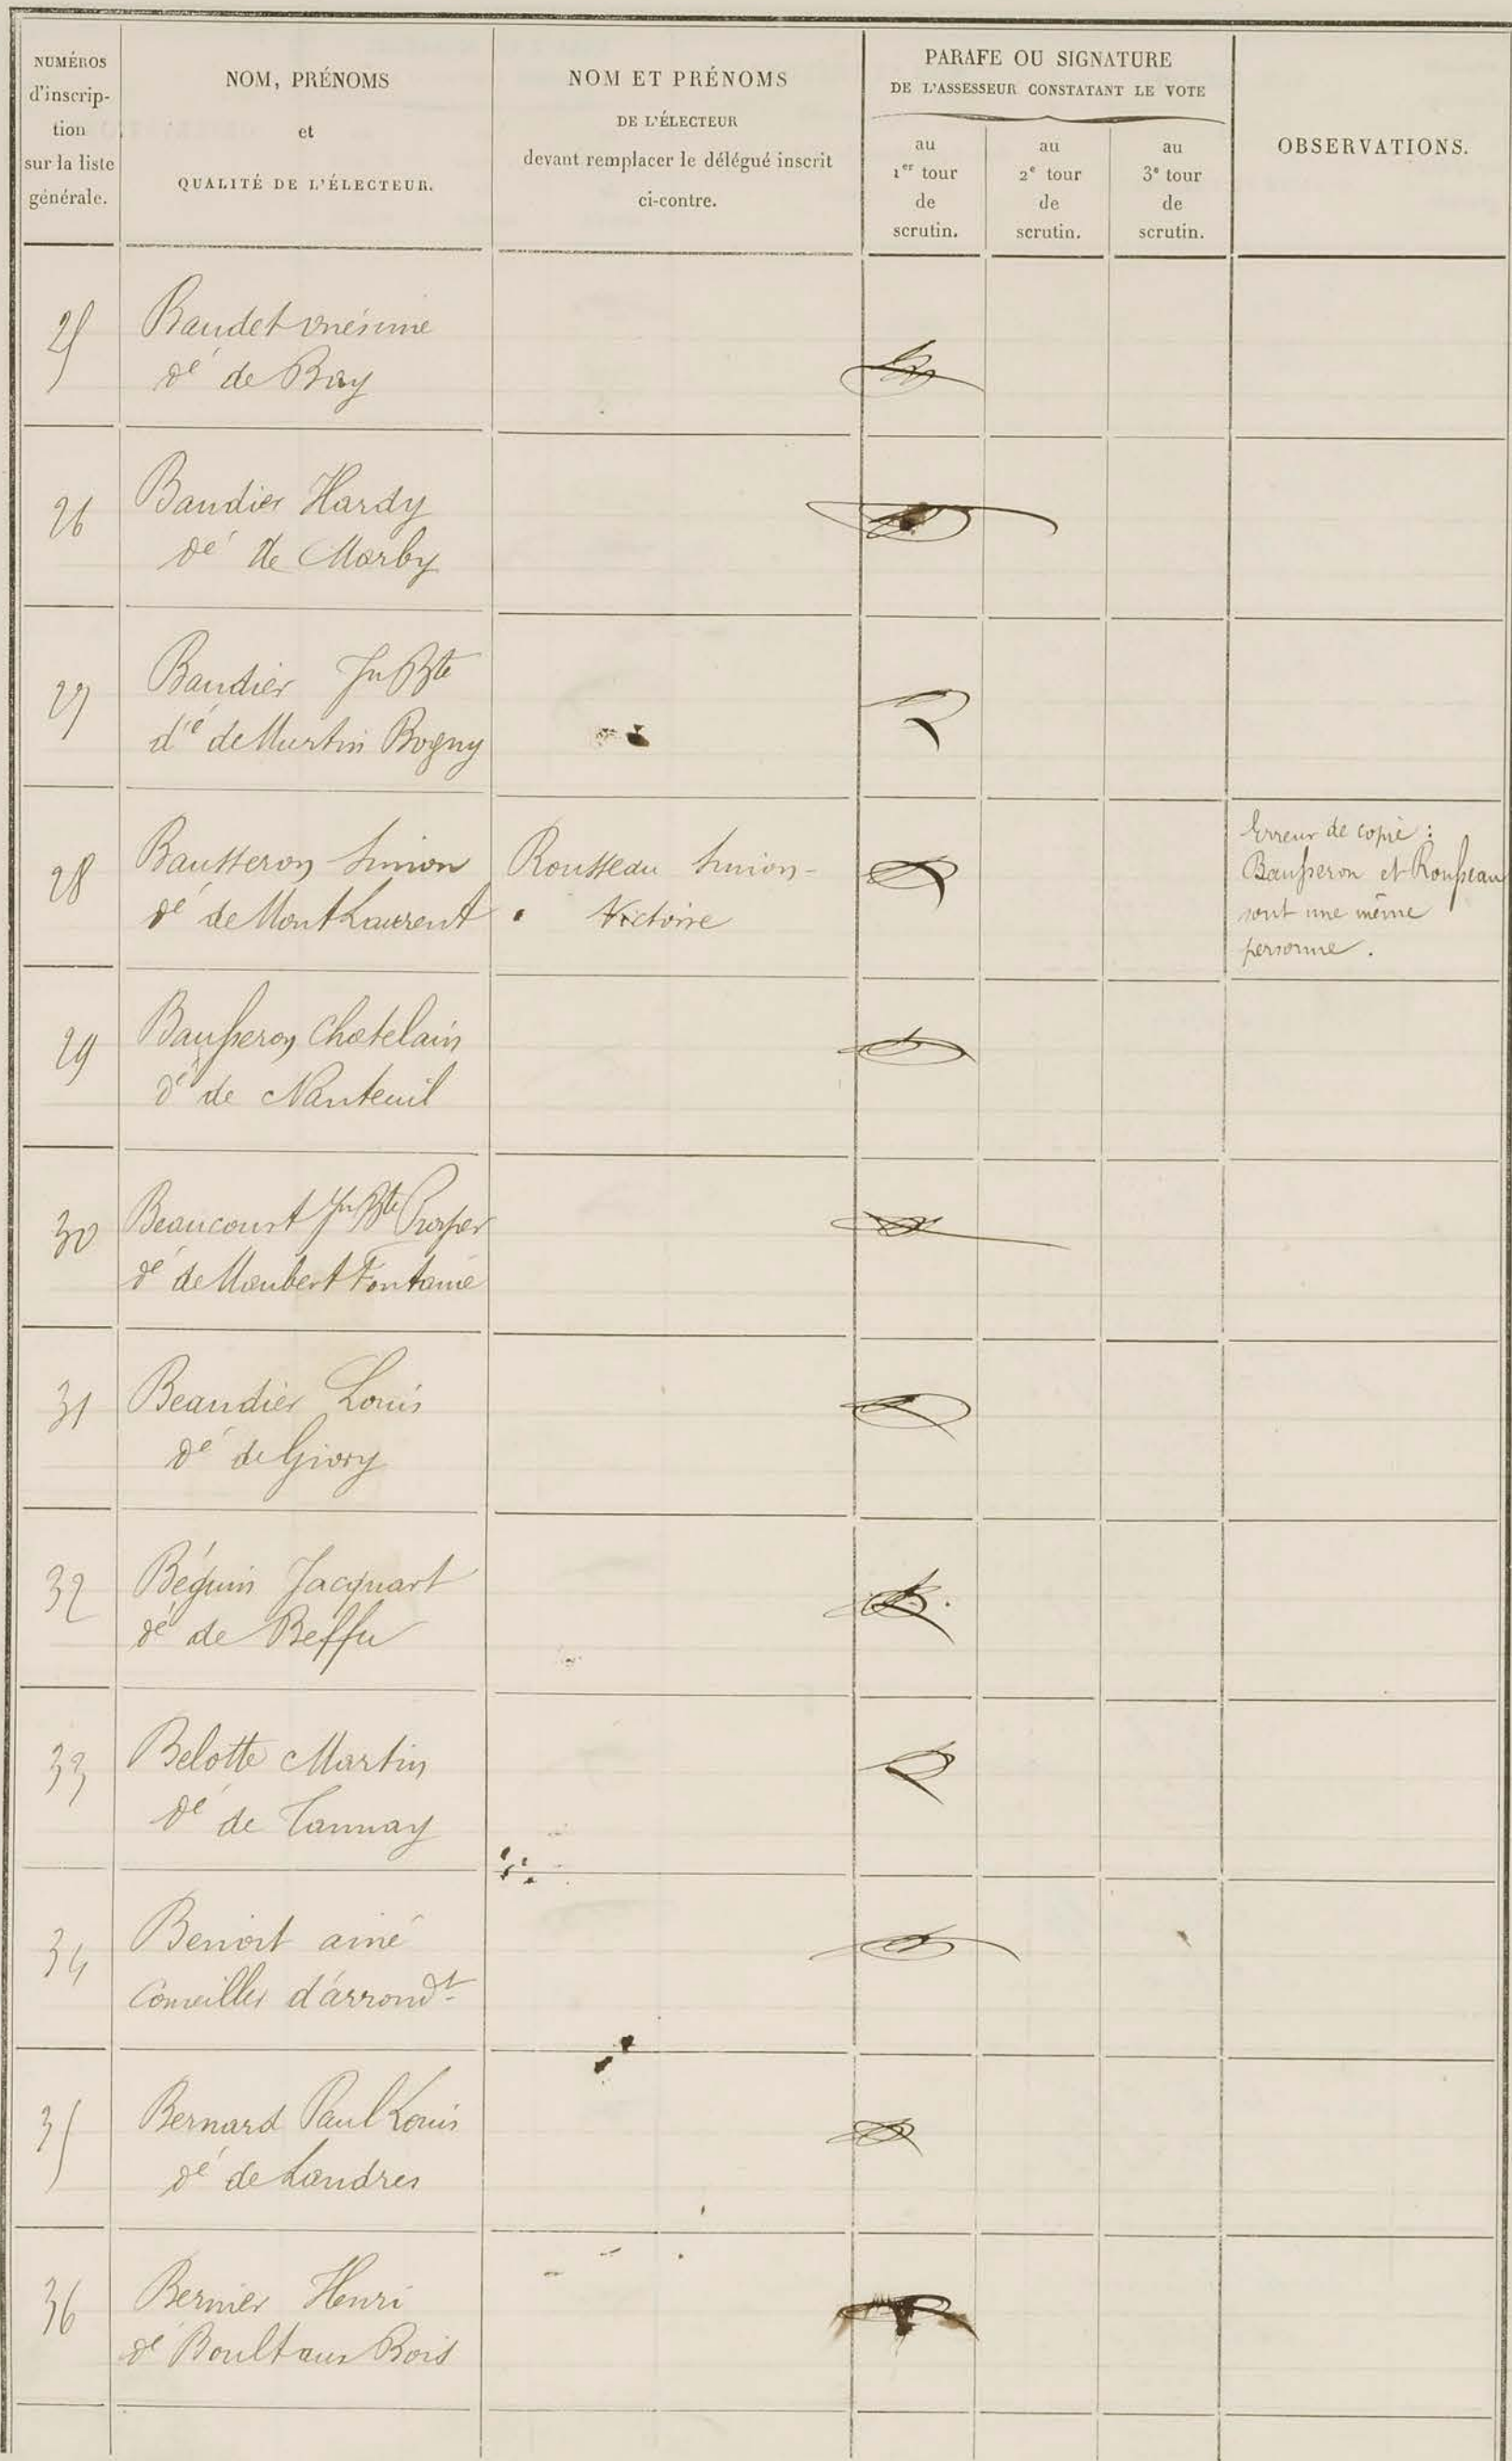 NUMÉROS
d'inscrip-
tion
sur la liste
générale.
NOM, PRÉNOMS
et
QUALITÉ DE L'ÉLECTEUR.
NOM ET PRÉNOMS
DE L'ÉLECTEUR
devant remplacer le délégué inscrit
ci-contre.
PARAFE OU SIGNATURE
DE L'ASSESSEUR CONSTATANT LE VOTE
au
1er tour
de
scrutin.
au
2e tour
de
scrutin.
au
3e tour
de
scrutin.
OBSERVATIONS.
25 Baudet onésime
dé de Bay
26 Baudier Hardy
dé de Marby
27 Baudier Jn Bte
dé de Murtin Bogny
28 Bausseron Simion Rousseau Simion-
dé de Mont Laurent Victoire
Erreur de copie :
Bausseron et Rousseau
sont une même
personne.
29 Bausseron Chatelain
dé de Nanteuil
30 Beaucourt Jn Bte Prosper
dé de Maubert Fontaine
31 Beaudier Louis
dé de Givry
32 Béguin Jacquart
dé de Beffu
33 Belotte Martin
dé de Tannay
34 Benoit ainé
Conseiller d'arrondt
35 Bernard Paul Louis
dé de Landres
36 Bernier Henri
dé Boult aux Bois